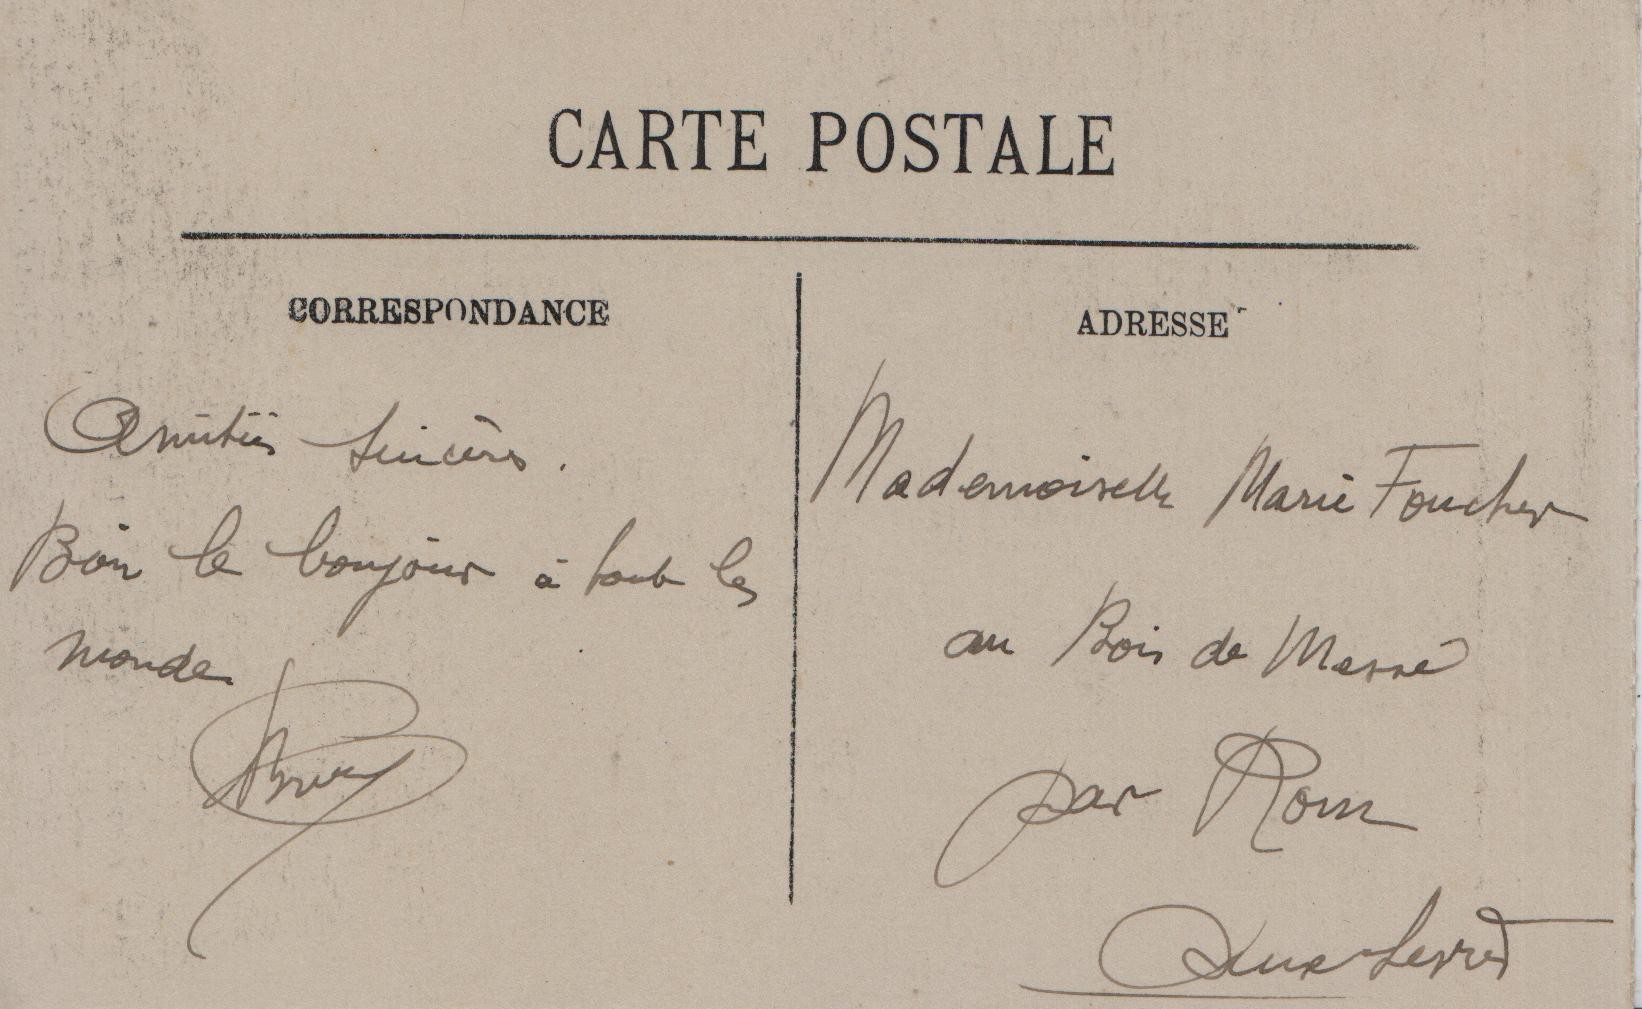 CARTE POSTALE
CORRESPONDANCE
Amitiés sincères.
Bien le bonjour à tout le
monde.
ADRESSE
Mademoiselle Marie Foucher
au Bois de Messé
par Rom
Deux Sèvres